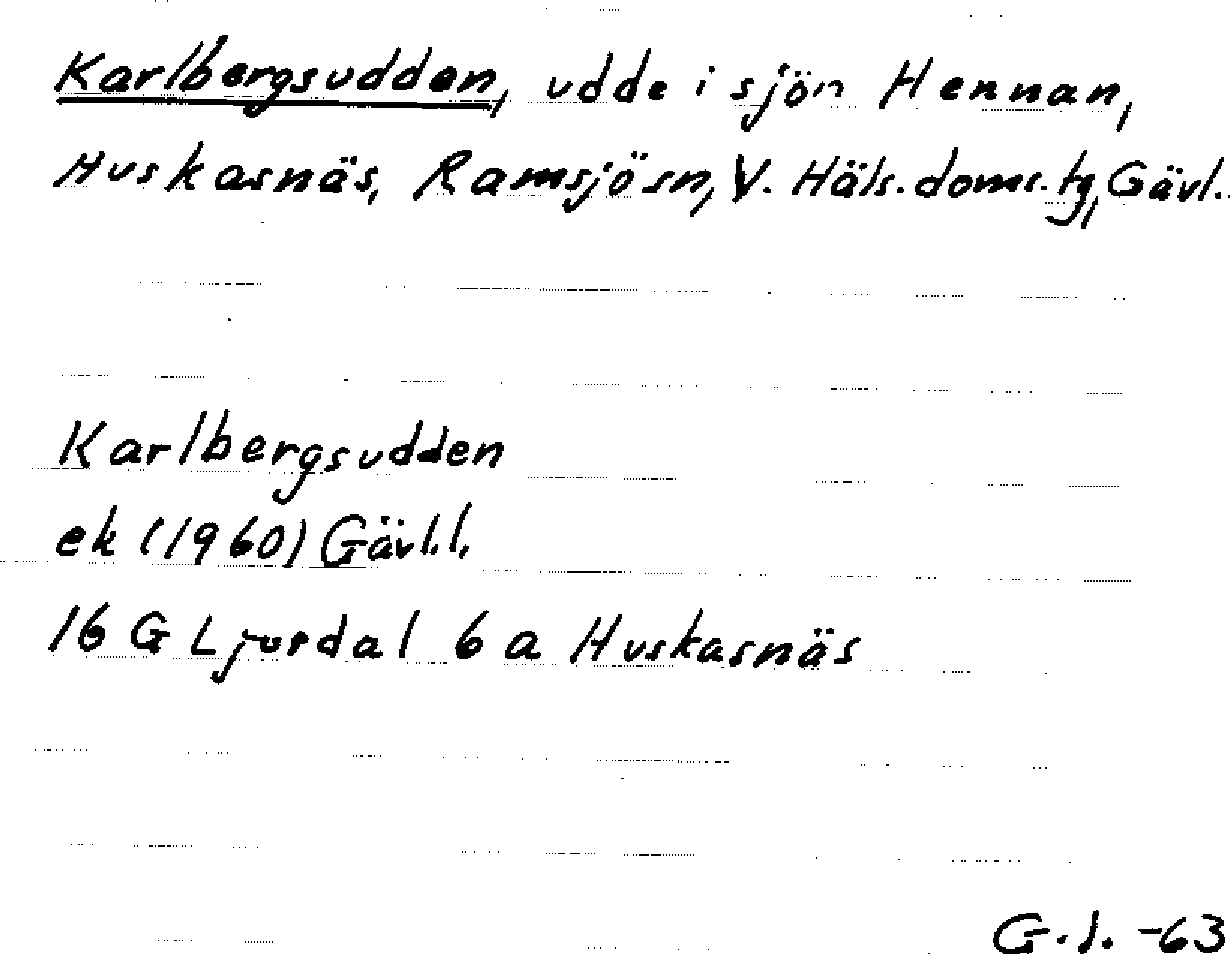 Karlbergsudden, udde i sjön Hennan,
Huskasnäs, Ramsjösn, V. Häls. doms. tg, Gävl.
Karlbergsudden
ek (1960) Gävl.l.
16 G Ljusdal 6 a Huskasnäs
G.J. -63